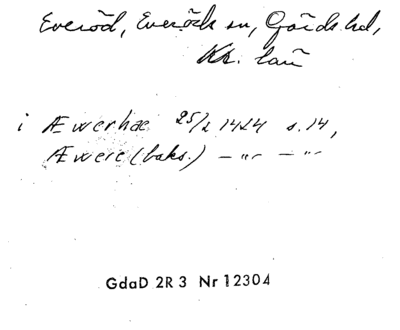 Everöd, Everöds sn, Gärds hd,
Kr. län
i Æwerhæ 25/2 1424 s. 14,
Æwere (baks.) — "- — "-
GdaD 2R3 Nr 12304